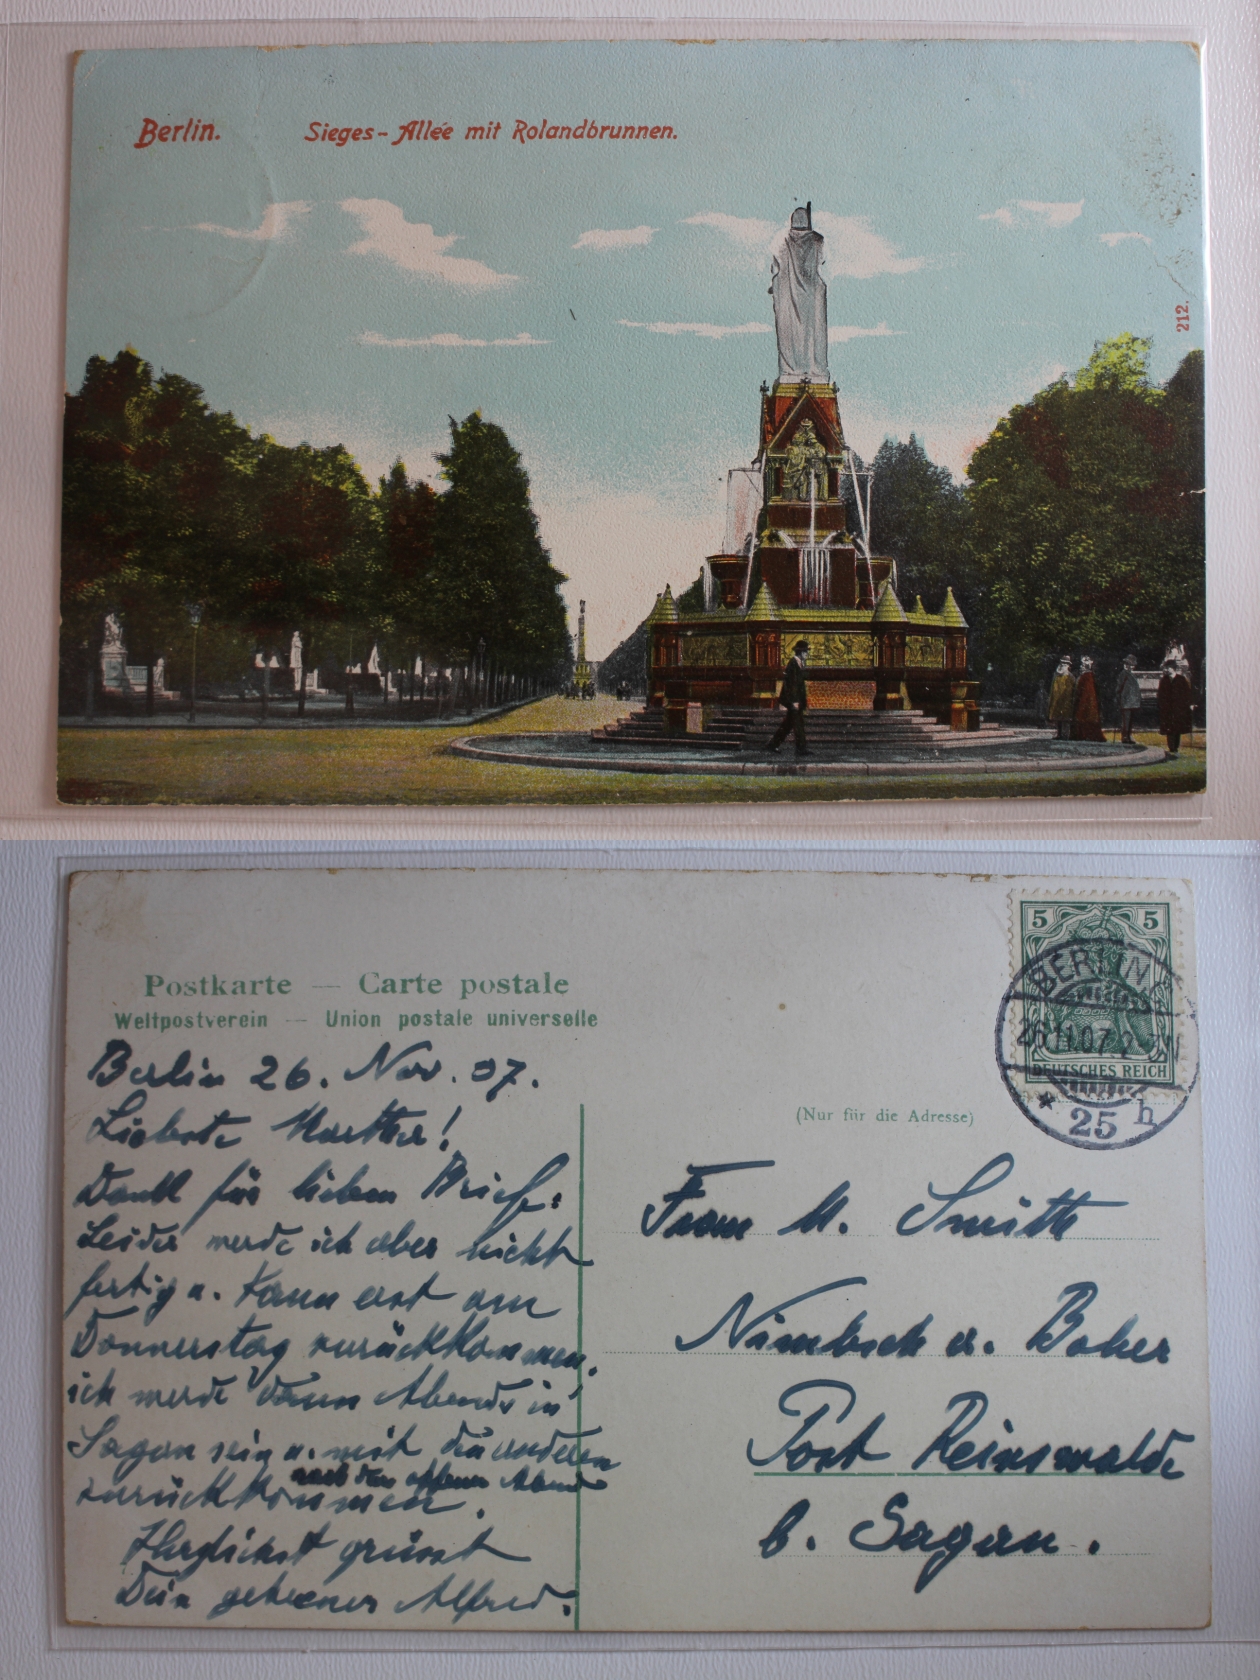 Berlin. Sieges-Allée mit Rolandbrunnen.
212.
Postkarte — Carte postale
Weltpostverein — Union postale universelle
5 5
BERLIN
26.11.07. 2
DEUTSCHES REICH
* 25 h
(Nur für die Adresse)
Berlin 26. Nov. 07.
Liebste Marthe!
Dank für lieben Brief.
Leider werde ich aber nicht
fertig u. kann erst am
Donnerstag zurückkommen,
ich werde dann Abends in
Sagan sein u. mit den anderen
zurückkommen.
Herzlichst grüsst
Dein getreuer Alfred.
Frau M. Smith
Nimbsch a. Bober
Post Reinswalde
b. Sagan.